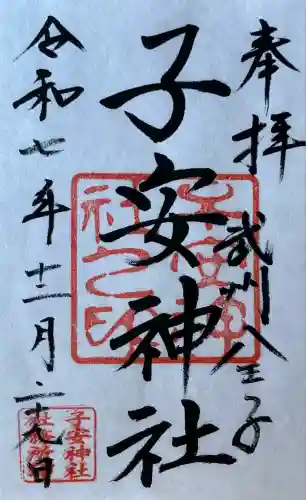 奉拝
武州八王子
子安神社
令和七年十二月二十九日
子安神
社之印
子安神社
社務所